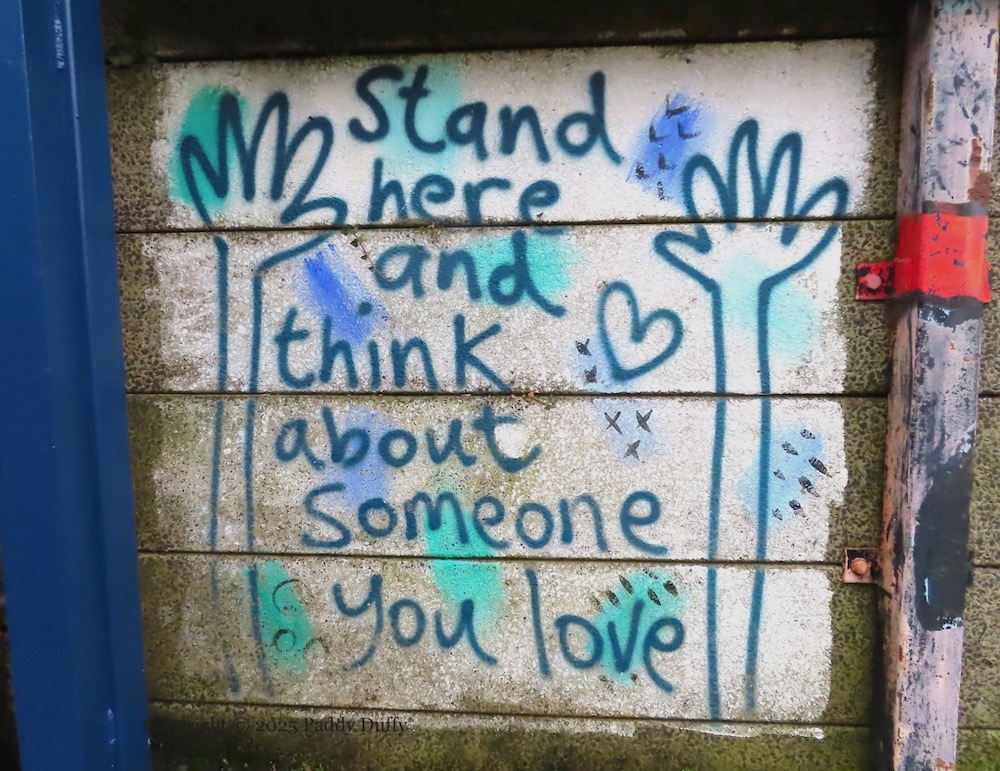 Stand
here
and
think
about
Someone
you love
Copyright © 2025 Paddy Duffy